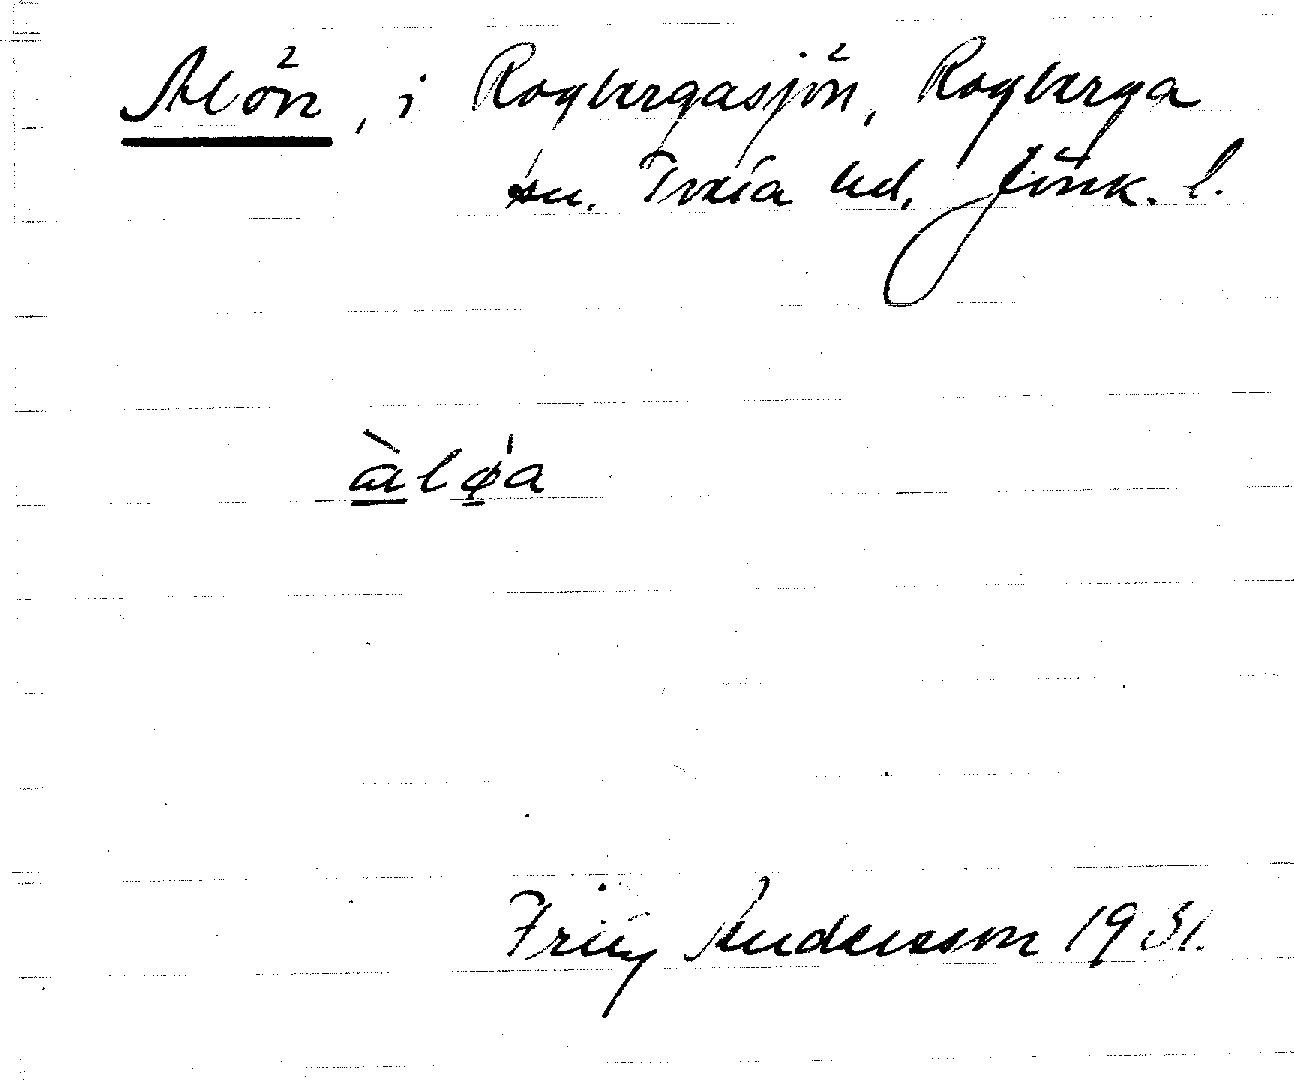 Alön, i Rogbergasjön, Rogberga
sn. Tveta hd. Jönk. l.
àlø'a
Andersson 1931.